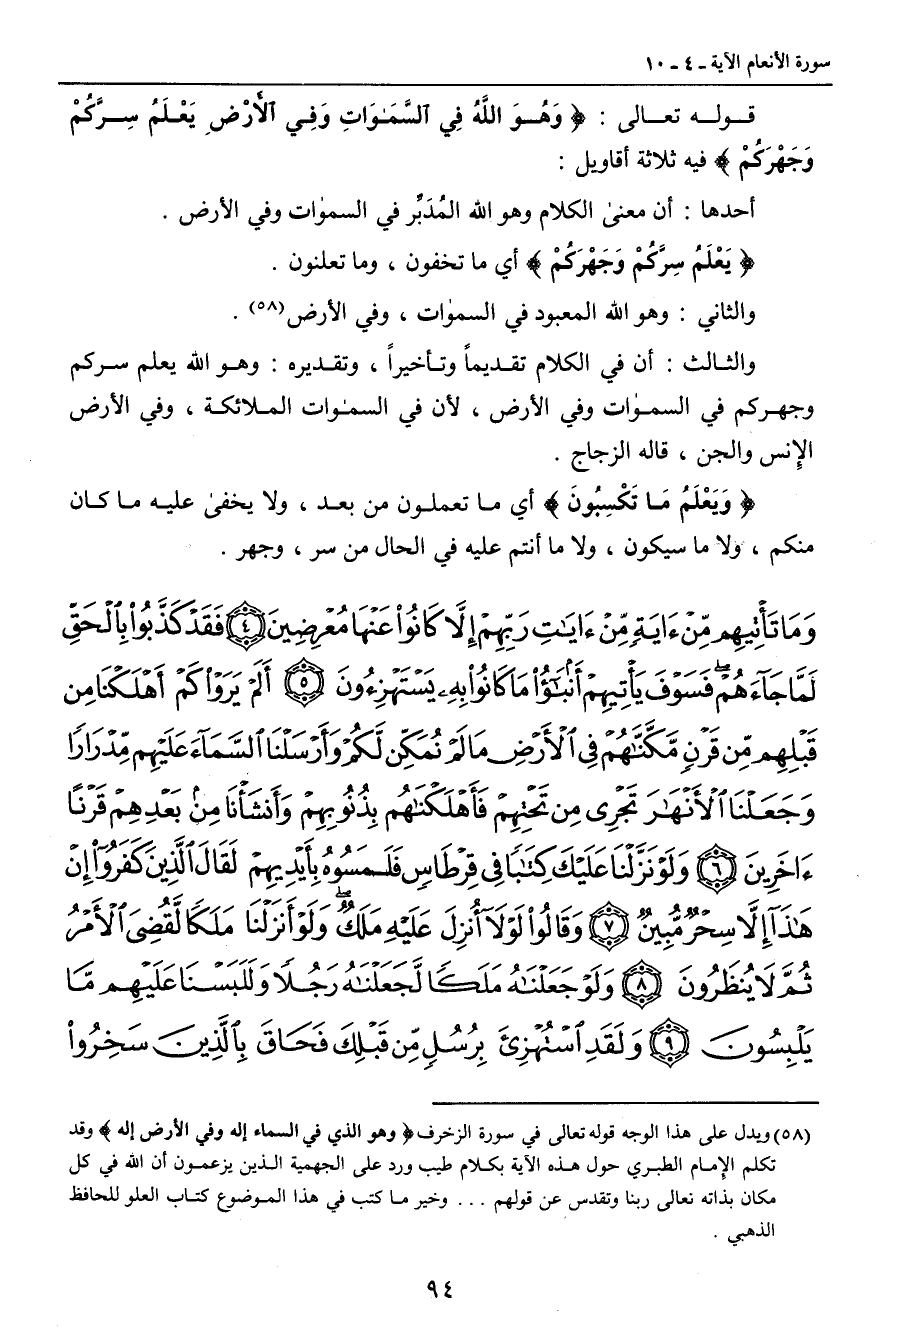 سورة الأنعام الآية ـ ٤ ـ ١٠
قـولـه تعـالى : ﴿ وَهُـوَ اللَّهُ فِي السَّمَوَاتِ وَفِـي الْأَرْضِ يَعْـلَمُ سِـرَّكُمْ
وَجَهْرَكُمْ ﴾ فيه ثلاثة أقاويل :
أحدها : أن معنىٰ الكلام وهو الله المُدَبِّر في السمٰوات وفي الأرض .
﴿ يَعْلَمُ سِرَّكُمْ وَجَهْرَكُمْ ﴾ أي ما تخفون ، وما تعلنون .
والثاني : وهو الله المعبود في السمٰوات ، وفي الأرض(٥٨) .
والثـالث : أن في الكلام تقـديمـاً وتـأخيـراً ، وتقـديره : وهـو الله يعلم سـركم
وجهـركم في السمـٰوات وفي الأرض ، لأن في السمـٰوات المـلائكـة ، وفي الأرض
الإنس والجن ، قاله الزجاج .
﴿ وَيَعْلَمُ مَا تَكْسِبُونَ ﴾ أي مـا تعملـون من بعـد ، ولا يخفىٰ عليـه مـا كـان
منكم ، ولا ما سيكون ، ولا ما أنتم عليه في الحال من سر ، وجهر .
وَمَا تَأْتِيهِم مِّنْ ءَايَةٍ مِّنْ ءَايَٰتِ رَبِّهِمْ إِلَّا كَانُوا۟ عَنْهَا مُعْرِضِينَ ﴿٤﴾ فَقَدْ كَذَّبُوا۟ بِٱلْحَقِّ
لَمَّا جَآءَهُمْ ۖ فَسَوْفَ يَأْتِيهِمْ أَنۢبَٰٓؤُا۟ مَا كَانُوا۟ بِهِۦ يَسْتَهْزِءُونَ ﴿٥﴾ أَلَمْ يَرَوْا۟ كَمْ أَهْلَكْنَا مِن
قَبْلِهِم مِّن قَرْنٍ مَّكَّنَّٰهُمْ فِى ٱلْأَرْضِ مَا لَمْ نُمَكِّن لَّكُمْ وَأَرْسَلْنَا ٱلسَّمَآءَ عَلَيْهِم مِّدْرَارًا
وَجَعَلْنَا ٱلْأَنْهَٰرَ تَجْرِى مِن تَحْتِهِمْ فَأَهْلَكْنَٰهُم بِذُنُوبِهِمْ وَأَنشَأْنَا مِنۢ بَعْدِهِمْ قَرْنًا
ءَاخَرِينَ ﴿٦﴾ وَلَوْ نَزَّلْنَا عَلَيْكَ كِتَٰبًا فِى قِرْطَاسٍ فَلَمَسُوهُ بِأَيْدِيهِمْ لَقَالَ ٱلَّذِينَ كَفَرُوٓا۟ إِنْ
هَٰذَآ إِلَّا سِحْرٌ مُّبِينٌ ﴿٧﴾ وَقَالُوا۟ لَوْلَآ أُنزِلَ عَلَيْهِ مَلَكٌ ۖ وَلَوْ أَنزَلْنَا مَلَكًا لَّقُضِىَ ٱلْأَمْرُ
ثُمَّ لَا يُنظَرُونَ ﴿٨﴾ وَلَوْ جَعَلْنَٰهُ مَلَكًا لَّجَعَلْنَٰهُ رَجُلًا وَلَلَبَسْنَا عَلَيْهِم مَّا
يَلْبِسُونَ ﴿٩﴾ وَلَقَدِ ٱسْتُهْزِئَ بِرُسُلٍ مِّن قَبْلِكَ فَحَاقَ بِٱلَّذِينَ سَخِرُوا۟
(٥٨) ويدل على هذا الوجه قوله تعالى في سورة الزخرف ﴿ وهو الذي في السماء إله وفي الأرض إله ﴾ وقد
تكلم الإمـام الطبـري حول هـذه الآية بكـلام طيب ورد على الجهمية الـذين يزعمـون أن الله في كل
مكان بذاته تعالى ربنا وتقدس عن قولهم ... وخير مـا كتب في هذا المـوضوع كتـاب العلو للحافظ
الذهبي .
٩٤